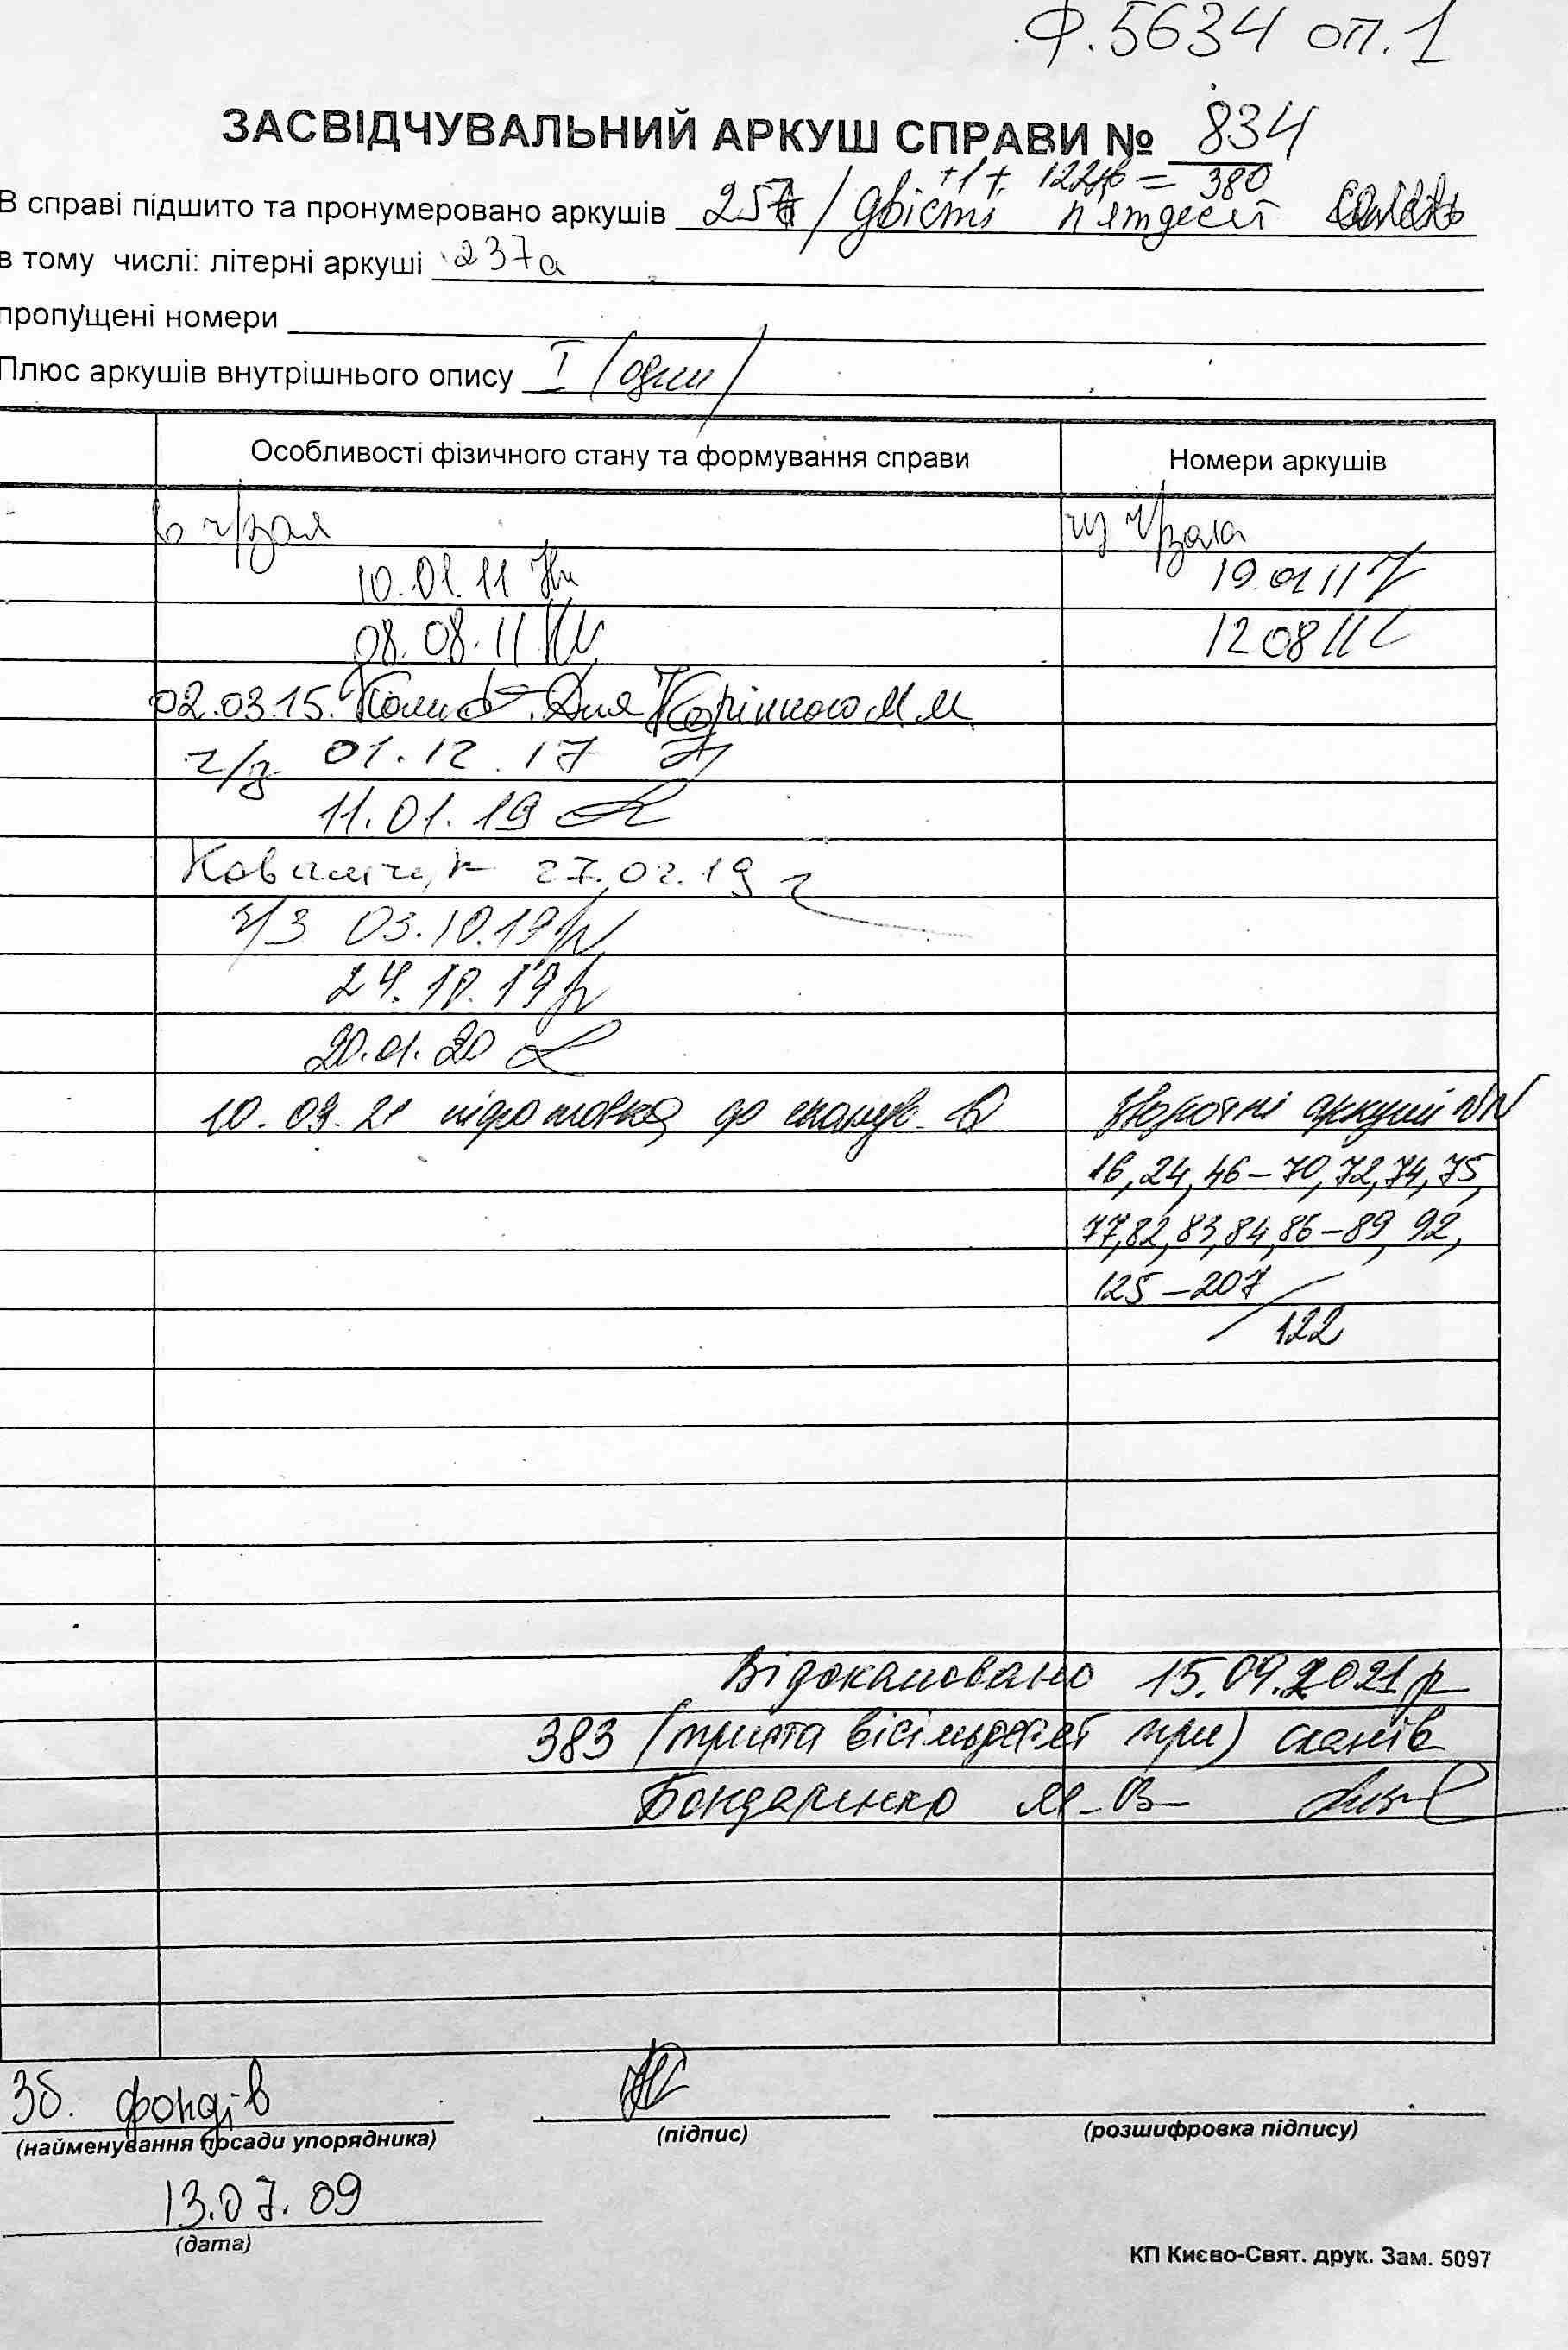 Ф. 5634 оп. 1
ЗАСВІДЧУВАЛЬНИЙ АРКУШ СПРАВИ № 834
+1+ 122зв = 380
В справі підшито та пронумеровано аркушів 257 / двісті п'ятдесят
в тому числі: літерні аркуші 237а
пропущені номери
Плюс аркушів внутрішнього опису I (один)
Особливості фізичного стану та формування справи Номери аркушів
в ч/зал из ч/зала
10.01.11 19.01 11
08.08.11 12 08 11
02.03.15. Для Корінного М.М.
ч/з 01.12.17
11.01.19
Ковальчук 27.02.19
ч/з 03.10.19
24.10.19
20.01.20
10.09.21 підготовка до сканув. Зворотні аркуші NN
16, 24, 46-70, 72, 74, 75,
77, 82, 83, 84, 86-89, 92,
125-207
122
Відскановано 15.09.2021 р
383 (триста вісімдесят три) сканів
Бондаренко М.В.
Зб. фондів
(найменування посади упорядника) (підпис) (розшифровка підпису)
13.07.09
(дата)
КП Києво-Свят. друк. Зам. 5097